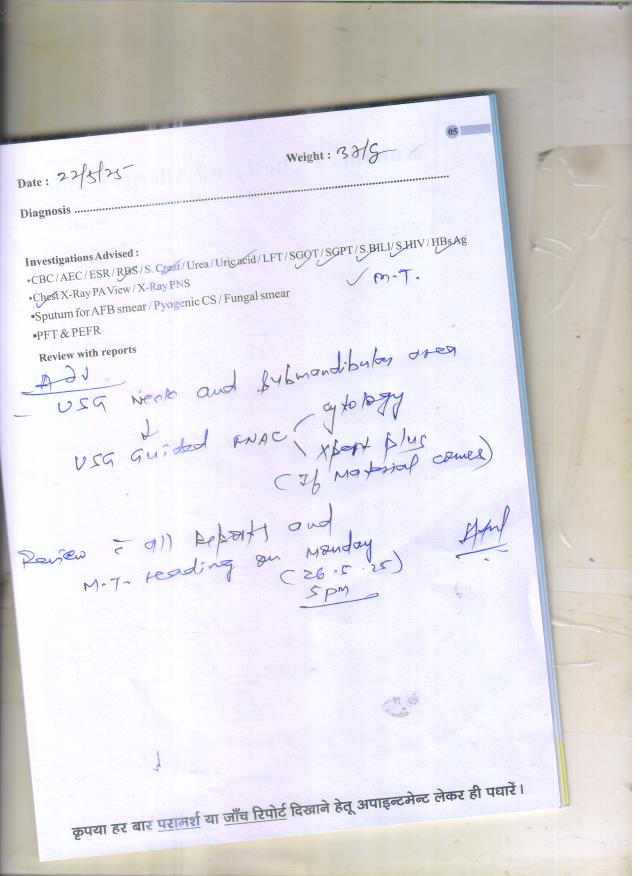 05
Date : 22/5/25 Weight : 37kg
Diagnosis ........................................................................
Investigations Advised :
•CBC / AEC / ESR / RBS / S. Creat / Urea / Uric acid / LFT / SGOT / SGPT / S.BILI / S.HIV / HBsAg
•Chest X-Ray PA View / X-Ray PNS ✓ M.T.
•Sputum for AFB smear / Pyogenic CS / Fungal smear
•PFT & PEFR
Review with reports
Adv
- USG Neck and Submandibular area
↓
USG Guided FNAC cytology
Xpert plus
(If Material comes)
Review c all reports and
M.T. reading on Monday
(26.5.25)
5 pm
कृपया हर बार परामर्श या जाँच रिपोर्ट दिखाने हेतू अपाइन्टमेन्ट लेकर ही पधारें।